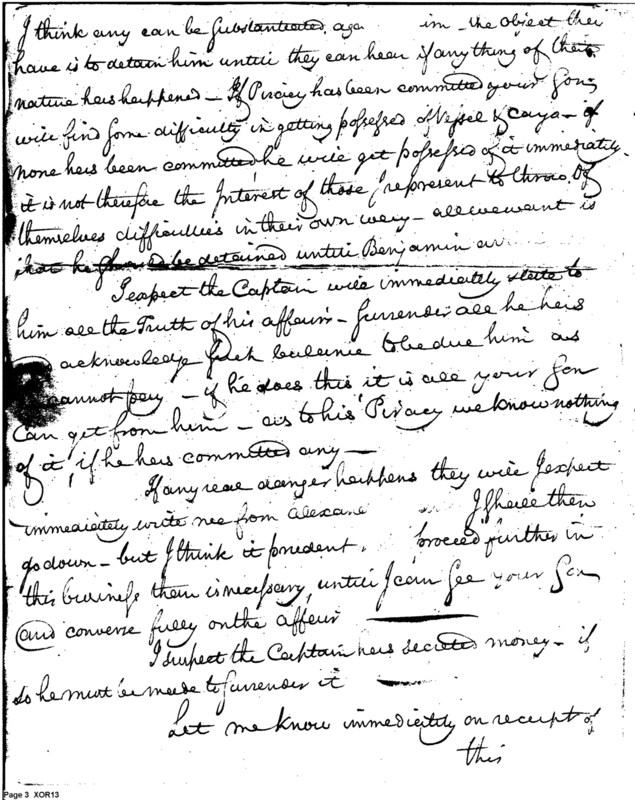 I think any can be Substantiated, aga im – the object they
have is to detain him untill they can hear if any thing of that
nature has happened – If Piracy has been committed your Son
will find some difficulty in getting possessed of Vessel & Cargo – if
none has been committed he will get possessed of it immediately.
it is not therefore the Interest of those I represent to throw
themselves difficulties in their own way – all we want is
that he should be detained untill Benjamin arr
I expect the Captain will immediately state to
him all the Truth of his affairs – Surrender all he has
acknowledge such ballance to be due him as
cannot pay – if he does this it is all your Son
Can get from him – as to his Piracy we know nothing
of it, if he has committed any –
If any real danger happens they will I expect
immediately write me from Alexan I shall then
go down – but I think it prudent proceed further in
this business than is necessary, untill I can See your Son
and converse fully on the affair
I suspect the Captain has secreted money – if
so he must be made to Surrender it
Let me know immediately on receipt of
this
Page 3 XOR13